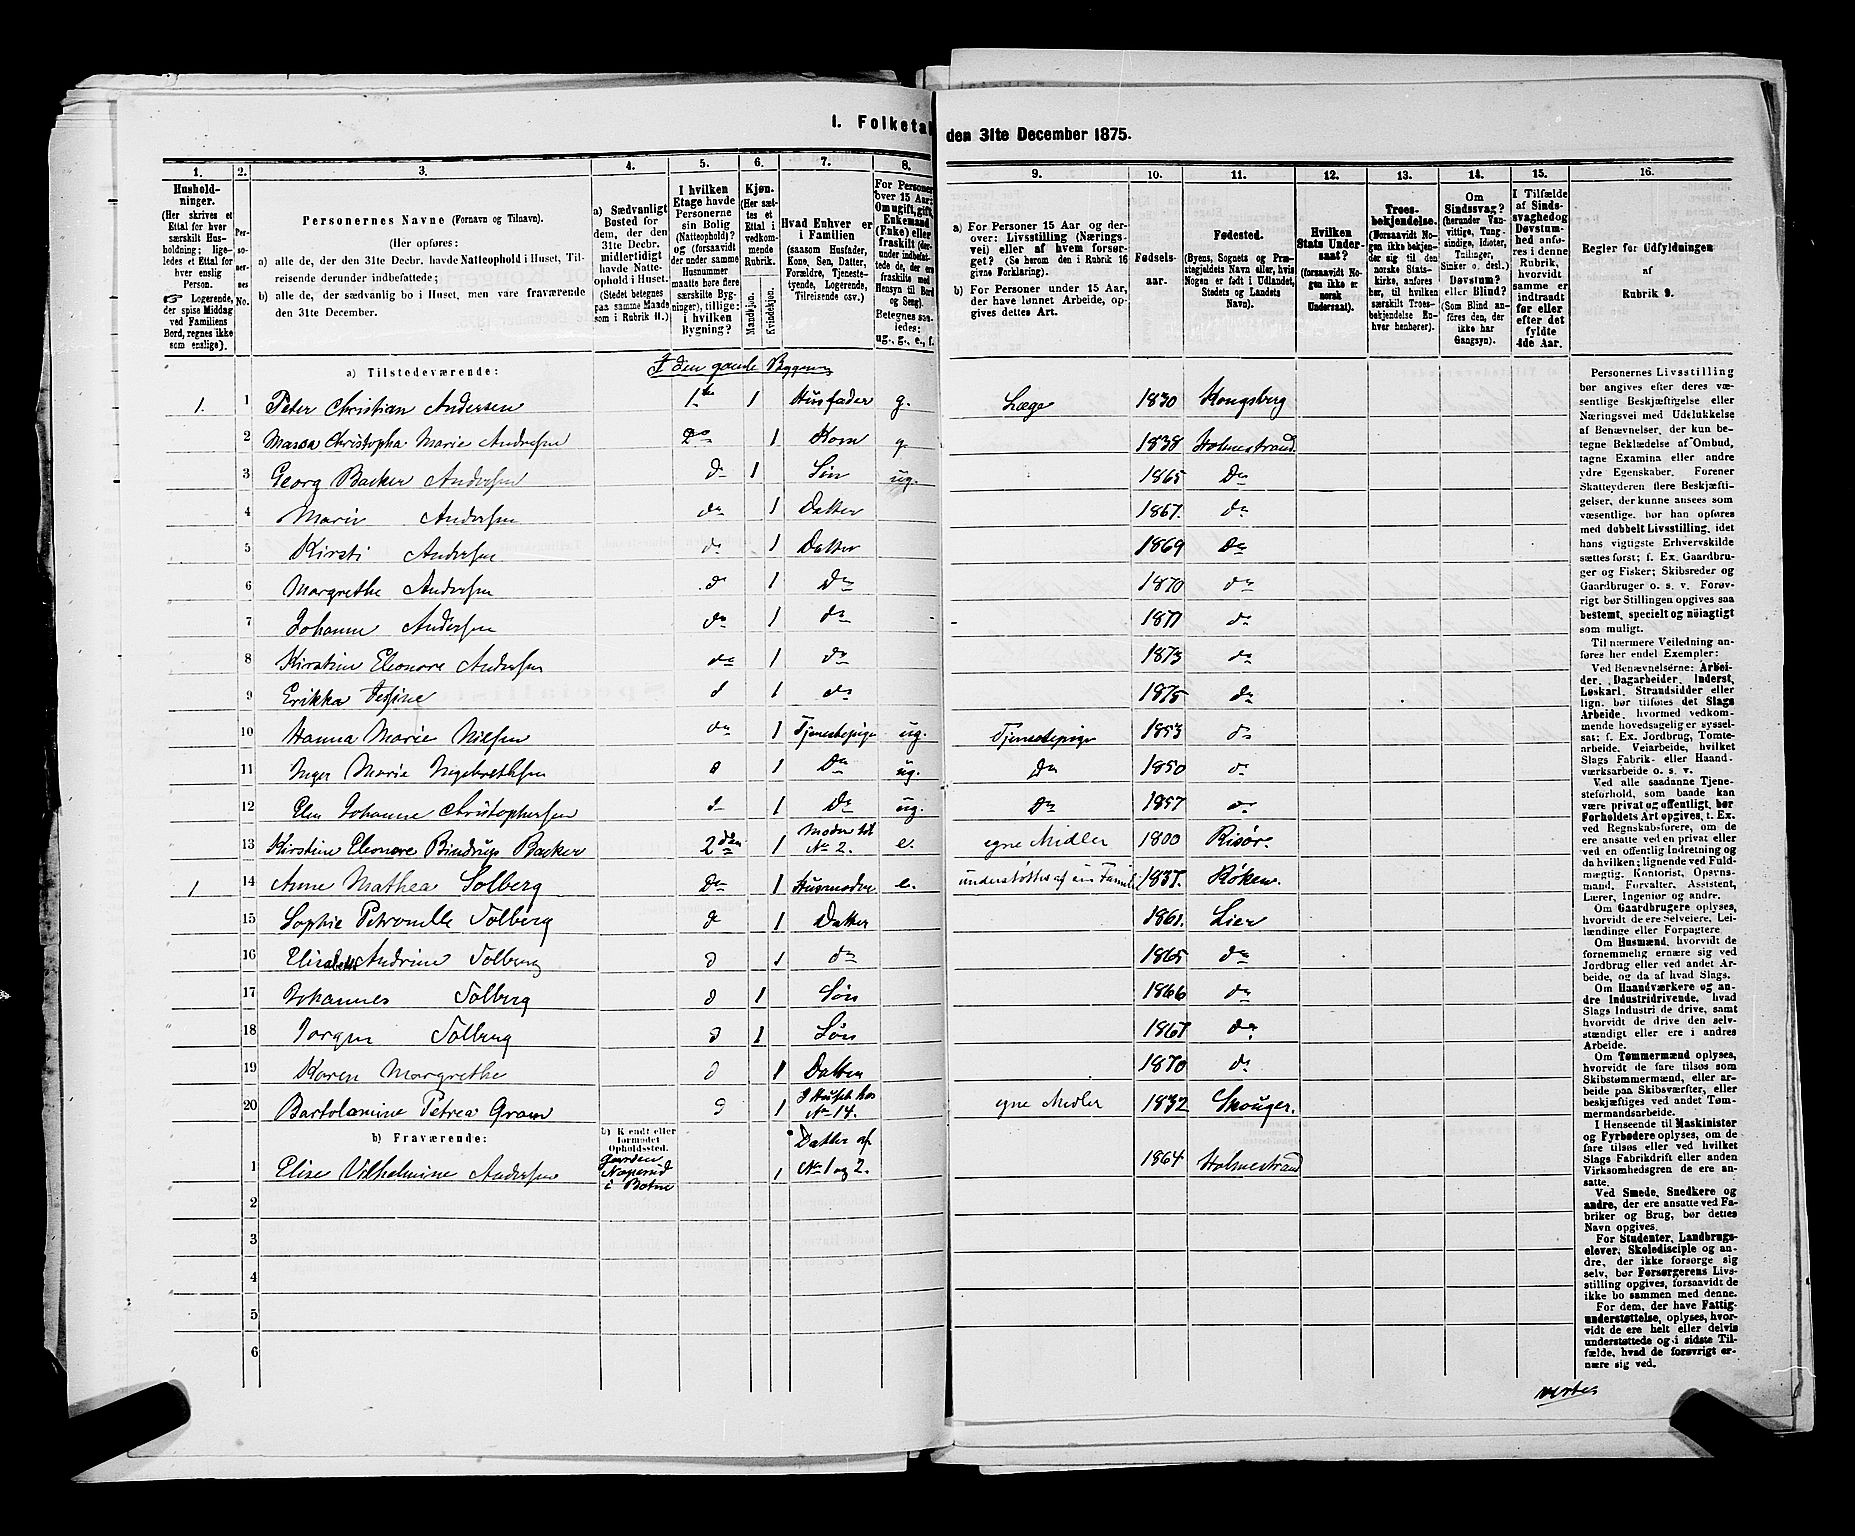 I. Folketal
den 31te December 1875.
1. 2. 3. 4. 5. 6. 7. 8. 9. 10. 11. 12. 13. 14. 15. 16.
Husholdninger.
(Her skrives et
Ettal for hver
særskilt Husholdning;
ligeledes et Ettal for
hver enslig
Person.
Logerende,
der spise Middag
ved Familiens
Bord, regnes ikke
som enslige).
Personernes No.
Personernes Navne (Fornavn og Tilnavn).
(Her opføres:
a) alle de, der den 31te Decbr. havde Natteophold i Huset, Tilreisende derunder indbefattede;
b) alle de, der sædvanlig bo i Huset, men vare fraværende
den 31te December.
a) Sædvanligt
Bosted for
dem, der den
31te Decbr.
midlertidigt
havde Natteophold i Huset.
(Stedet betegnes
paa samme Maade
som i Rubrik 11.)
I hvilken
Etage havde
Personerne
sin Bolig
(Natteophold)?
og (forsaavidt
der under samme
Husnummer
maatte høre flere
særskilte Bygninger), tillige:
i hvilken
Bygning?
Kjøn.
(Her sættes et
Ettal i
vedkommende
Rubrik.
Mandkjøn.
Kvindekjøn.
Hvad Enhver er
i Familien
(saasom Husfader,
Kone, Søn, Datter,
Forældre, Tjenestetyende, Logerende,
Tilreisende osv.)
For Personer
over 15 Aar:
Om ugift, gift,
Enkemand
(Enke) eller
fraskilt
Betegnes saaledes:
ug., g., e., f.
a) For Personer 15 Aar og derover: Livsstilling (Næringsvei) eller af hvem forsørget? (Se herom den i Rubrik 16
givne Forklaring).
b) For Personer under 15 Aar,
der have lønnet Arbeide, opgives dettes Art.
Fødselsaar.
Fødested.
(Byens, Sognets og Præstegjeldets Navn eller, hvis
Nogen er født i Udlandet,
Stedets og Landets
Navn).
Hvilken
Stats Undersaat?
(forsaavidt Nogen ikke er
norsk
Undersaat).
Troesbekjendelse.
(Forsaavidt Nogen ikke bekjender sig til den
norske Statskirke, anføres
her, til hvilken
særskilt Troesbekjendelse Enhver henhører).
Om
Sindssvag?
(herunder Vanvittige, Tungsindige, Idioter,
Tullinger,
Sinker o. desl.)
Døvstum?
eller Blind?
(Som Blind anføres den, der
ikke har
Gangsyn).
I Tilfælde
af Sindssvaghed og
Døvstumhed anføres i denne
Rubrik,
hvorvidt
samme er
indtraadt
før eller
efter det
fyldte
4de Aar.
Regler for Udfyldningen
af
Rubrik 9.
a) Tilstedeværende:
I den gamle Bygning
1. 1 Peter Christian Andersen 1ste 1 Husfader g. Læge 1830 Kongsberg
2 Maren Christopha Marie Andersen Do 1 Kone g. 1838 Holmestrand
3 Georg Backer Andersen do 1 Søn ug. 1865 Do
4 Marie Andersen do 1 Datter 1867. do
5 Kirsti Andersen do 1 Datter 1869 Do
6 Margrethe Andersen d 1 Do 1870 do
7 Johanne Andersen do 1 do 1871 do
8 Kirstine Eleonore Andersen do 1 do 1873 do
9 Erikka Jessine d 1 do 1875 do
10 Hanna Marie Nielsen do 1 Tjenestepige ug. Tjenestepige 1853 do
11 Inger Marie Ingebrethsen d 1 Do ug. Do 1850 do
12 Elen Johanne Christophersen d 1 Do ug. Do 1857 do
13 Kirstine Eleonore Bindrup Backer 2den 1 Moder til No 2. e. egne Midler 1800 Risør.
1 14 Anne Mathea Solberg Do 1 Husmoder e. understøttes af sin Familie 1837. Røken.
15 Sophie Petronelle Solberg d 1 Datter 1861. Lier
16 Elisabeth Andrine Solberg d 1 do 1865 do
17 Johannes Solberg d 1 Søn 1866 do
18 Jørgen Solberg d 1 Søn 1867 do
19 Karen Margrethe d 1 Datter 1870 do
20 Bartolamine Petrea Gram d 1 I Huset hos No 14. egne Midler 1832 Skouger.
b) Fraværende:
b) Kjendt eller
formodet
Opholdssted.
1 Elise Vilhelmine Andersen Gaarden Noperud i Botne 1 Datter af No 1 og 2. 1864 Holmestrand
2
3
4
5
6
Personernes Livsstilling
bør angives efter deres væsentlige Beskjæftigelse eller
Næringsvei med Udelukkelse
af Benævnelser, der kun betegne Beklædelse af Ombud,
tagne Examina eller andre
ydre Egenskaber. Forener
Skatteyderen flere Beskjæftigelser, der kunne ansees som
væsentlige, bør han opføres
med dobbelt Livsstilling, idet
hans vigtigste Erhvervskilde
sættes først; f. Ex. Gaardbruger og Fisker; Skibsreder og
Gaardbruger o. s. v. Forøvrigt bør Stillingen opgives saa
bestemt, specielt og nøiagtigt
som muligt.
Til nærmere Veiledning anføres her endel Exempler:
Ved Benævnelserne: Arbeider, Dagarbeider, Inderst,
Løskarl, Strandsidder eller
lign. bør tilføies det Slags
Arbeide, hvormed vedkommende hovedsagelig er sysselsat; f. Ex. Jordbrug, Tomtearbeide, Veiarbeide, hvilket
Slags Fabrik- eller Haandværksarbeide o. s. v.
Ved alle saadanne Tjenesteforhold, som baade kan
være privat og offentligt, bør
Forholdets Art opgives, f. Ex.
ved Regnskabsførere, om de
ere ansatte ved en privat eller
ved en offentlig Indretning og
da hvilken; lignende ved Fuldmægtig, Kontorist, Opsynsmand, Forvalter, Assistent,
Lærer, Ingeniør og andre.
Om Gaardbrugere oplyses,
hvorvidt de ere Selveiere, Leilændinge eller Forpagtere.
Om Husmænd, hvorvidt de
fornemmelig ernære sig ved
Jordbrug eller ved andet Arbeide, og da af hvad Slags.
Om Haandværkere og andre Industridrivende, hvad
Slags Industri de drive, samt
hvorvidt de drive den selvstændigt eller ere i andres
Arbeide.
Om Tømmermænd oplyses,
hvorvidt de fare tilsøs som
Skibstømmermænd, eller arbeide paa Skibsværfter, eller
beskjæftiges ved andet Tømmermandsarbeide.
I Henseende til Maskinister
og Fyrbødere oplyses, om de
fare tilsøs eller ved hvilket
Slags Fabrikdrift eller anden
Virksomhedsgren de ere ansatte.
Ved Smede, Snedkere og
andre, der ere ansatte ved Fabriker og Brug, bør dettes
Navn opgives.
For Studenter, Landbrugselever, Skoledisciple og andre, der ikke forsørge sig
selv, bør Forsørgerens Livsstilling opgives, forsaavidt de
ikke bo sammen med denne.
For dem, der have Fattigunderstøttelse, oplyses, hvorvidt de ere helt eller delvis
understøttede og i sidste Tilfælde, hvad de forøvrigt ernære sig ved.
vertes